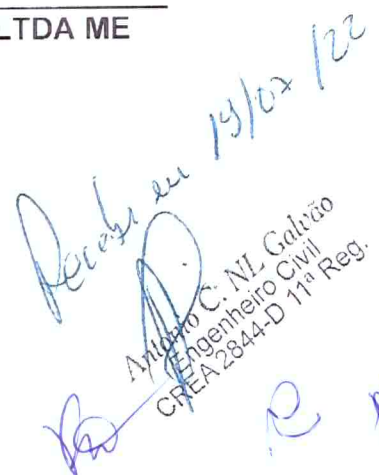 LTDA ME
Recebi em 19/07/22
Antonio C. NL Galvão
Engenheiro Civil
CREA 2844-D 11ª Reg.